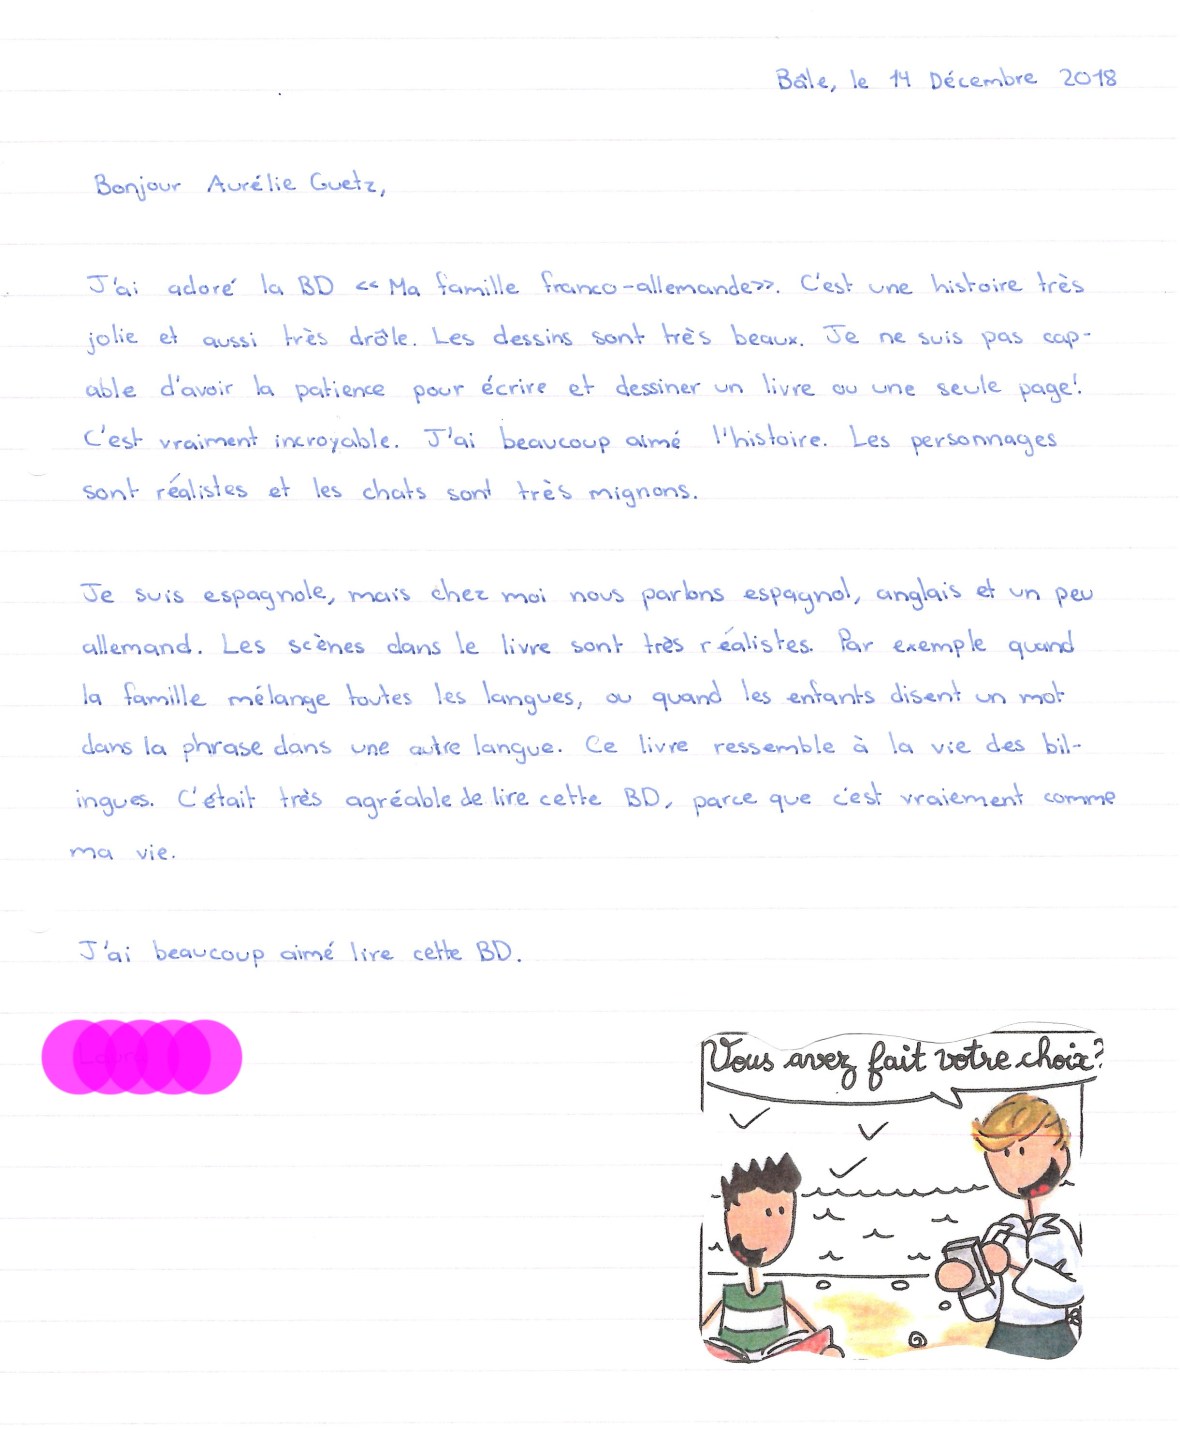 Bâle, le 14 Décembre 2018
Bonjour Aurélie Guetz,
J'ai adoré la BD << Ma famille franco-allemande>>. C'est une histoire très
jolie et aussi très drôle. Les dessins sont très beaux. Je ne suis pas cap-
able d'avoir la patience pour écrire et dessiner un livre ou une seule page!
C'est vraiment incroyable. J'ai beaucoup aimé l'histoire. Les personnages
sont réalistes et les chats sont très mignons.
Je suis espagnole, mais chez moi nous parlons espagnol, anglais et un peu
allemand. Les scènes dans le livre sont très réalistes. Par exemple quand
la famille mélange toutes les langues, ou quand les enfants disent un mot
dans la phrase dans une autre langue. Ce livre ressemble à la vie des bil-
ingues. C'était très agréable de lire cette BD, parce que c'est vraiement comme
ma vie.
J'ai beaucoup aimé lire cette BD.
Vous avez fait votre choix?